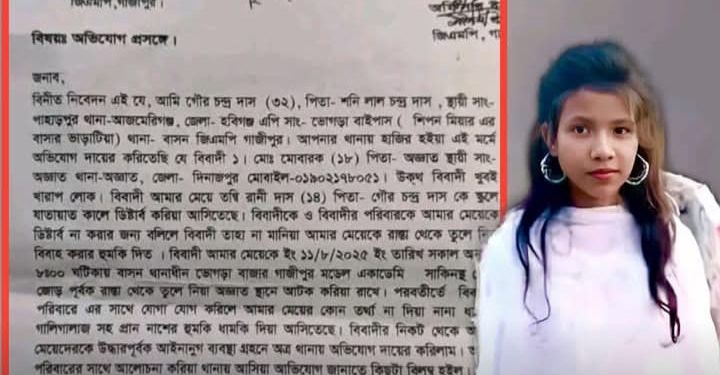 জিএমপি,গাজীপুর।
জিএমপি, গা
বিষয়ঃ অভিযোগ প্রসঙ্গে ।
জনাব,
বিনীত নিবেদন এই যে, আমি গৌর চন্দ্র দাস (৩২), পিতা- শনি লাল চন্দ্র দাস , স্থায়ী সাং-
পাহাড়পুর থানা-আজমেরিগঞ্জ, জেলা- হবিগঞ্জ এপি সাং- ভোগড়া বাইপাস ( শিপন মিয়ার এর
বাসার ভাড়াটিয়া) থানা- বাসন জিএমপি গাজীপুর। আপনার থানায় হাজির হইয়া এই মর্মে
অভিযোগ দায়ের করিতেছি যে বিবাদী ১। মোঃ মোবারক (১৮) পিতা- অজ্ঞাত স্থায়ী সাং-
অজ্ঞাত থানা-অজ্ঞাত, জেলা- দিনাজপুর মোবাইল-০১৯০২১৭৮০৫১। উক্ত বিবাদী খুবই
খারাপ লোক। বিবাদী আমার মেয়ে তন্বি রানী দাস (১৪) পিতা- গৌর চন্দ্র দাস কে স্কুলে
যাতায়াত কালে ডিষ্টার্ব করিয়া আসিতেছে। বিবাদীকে ও বিবাদীর পরিবারকে আমার মেয়েকে
ডিষ্টার্ব না করার জন্য বলিলে বিবাদী তাহা না মানিয়া আমার মেয়েকে রাস্তা থেকে তুলে নিয়
বিবাহ করার হুমকি দিত । বিবাদী আমার মেয়েকে ইং ১১/৮/২০২৫ ইং তারিখ সকাল অনু
৮ঃ০০ ঘটিকায় বাসন থানাধীন ভোগড়া বাজার গাজীপুর মডেল একাডেমি সাকিনস্থ
জোড় পূর্বক রাস্তা থেকে তুলে নিয়া অজ্ঞাত স্থানে আটক করিয়া রাখে। পরবর্তীতে বিব
পরিবারে এর সাথে যোগা যোগ করিলে আমার মেয়ের কোন তর্থ্য না দিয়া নানা ধ
গালিগালাজ সহ প্রান নাশের হুমকি ধামকি দিয়া আসিতেছে। বিবাদীর নিকট থেকে অ
মেয়েদেরকে উদ্ধারপূর্বক আইনানুগ ব্যবস্থা গ্রহনে অত্র থানায় অভিযোগ দায়ের করিলাম।
পরিবারের সাথে আলোচনা করিয়া থানায় আসিয়া অভিযোগ জানাতে কিছুটা বিলম্ব হইল।